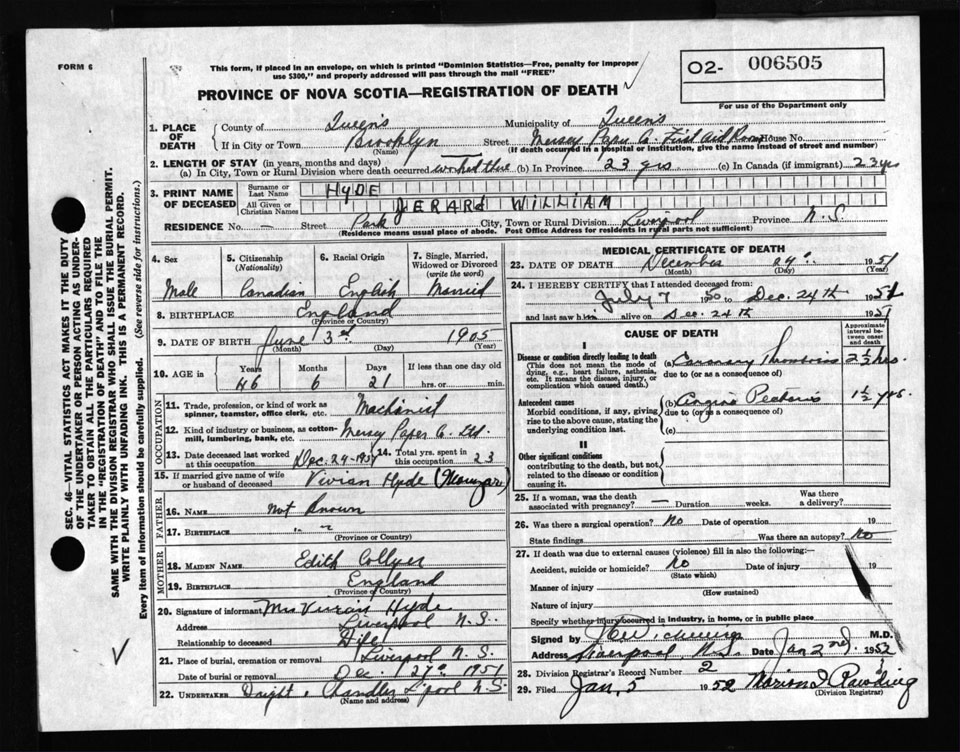 FORM 6
This form, if placed in an envelope, on which is printed "Dominion Statistics—Free, penalty for improper
use $300," and properly addressed will pass through the mail "FREE"
PROVINCE OF NOVA SCOTIA—REGISTRATION OF DEATH
O2- 006505
For use of the Department only
1. PLACE OF DEATH
County of Queen's Municipality of Queen's
If in City or Town Brooklyn Street Mersey Paper Co. First Aid Room House No.
(Name) (If death occurred in a hospital or institution, give the name instead of street and number)
2. LENGTH OF STAY (in years, months and days)
(a) In City, Town or Rural Division where death occurred worked there (b) In Province 23 yrs (c) In Canada (if immigrant) 23 yrs
3. PRINT NAME OF DECEASED
Surname or Last Name HYDE
All Given or Christian Names JERARD WILLIAM
RESIDENCE No. — Street Park City, Town or Rural Division Liverpool Province N.S.
(Residence means usual place of abode. Post Office Address for residents in rural parts not sufficient)
4. Sex
Male
5. Citizenship (Nationality)
Canadian
6. Racial Origin
English
7. Single, Married, Widowed or Divorced (write the word)
Married
8. BIRTHPLACE England
(Province or Country)
9. DATE OF BIRTH June 3rd 1905
(Month) (Day) (Year)
10. AGE in Years Months Days If less than one day old
46 6 21 hrs. or min.
OCCUPATION
11. Trade, profession, or kind of work as spinner, teamster, office clerk, etc. Machanist
12. Kind of industry or business, as cotton-mill, lumbering, bank, etc. Mersey Paper Co. Ltd.
13. Date deceased last worked at this occupation Dec. 24-1951
14. Total yrs. spent in this occupation 23
15. If married give name of wife or husband of deceased Vivian Hyde
FATHER
16. NAME Not Known
17. BIRTHPLACE " "
(Province or Country)
MOTHER
18. MAIDEN NAME Edith Collyer
19. BIRTHPLACE England
(Province or Country)
20. Signature of informant Mrs Vivian Hyde
Address Liverpool N.S.
Relationship to deceased Wife
21. Place of burial, cremation or removal Liverpool N.S.
Date of burial or removal Dec 27th 1951
22. UNDERTAKER Chandler L'pool N.S.
(Name and address)
MEDICAL CERTIFICATE OF DEATH
23. DATE OF DEATH December 24th 1951
(Month) (Day) (Year)
24. I HEREBY CERTIFY that I attended deceased from:
July 7 1950 to Dec. 24th 1951
and last saw him alive on Dec. 24th 1951
CAUSE OF DEATH
Approximate interval between onset and death
I
Disease or condition directly leading to death
(This does not mean the mode of dying, e.g., heart failure, asthenia, etc. It means the disease, injury, or complication which caused death)
(a) Coronary Thrombosis 2½ hrs.
due to (or as a consequence of)
Antecedent causes
Morbid conditions, if any, giving rise to the above cause, stating the underlying condition last.
(b) Angina Pectoris 1½ yrs.
due to (or as a consequence of)
(c)
II
Other significant conditions
contributing to the death, but not related to the disease or condition causing it.
25. If a woman, was the death associated with pregnancy? — Duration weeks. Was there a delivery?
26. Was there a surgical operation? No Date of operation 19
State findings Was there an autopsy? No
27. If death was due to external causes (violence) fill in also the following:—
Accident, suicide or homicide? No Date of injury 19
(State which)
Manner of injury
(How sustained)
Nature of injury
Specify whether injury occurred in industry, in home, or in public place
Signed by M.D.
Address Liverpool N.S. Date Jan 2nd, 1952
28. Division Registrar's Record Number 2
29. Filed Jan. 5 1952 Marion
(Division Registrar)
SEC. 46—VITAL STATISTICS ACT MAKES IT THE DUTY
OF THE UNDERTAKER OR PERSON ACTING AS UNDER-
TAKER TO OBTAIN ALL THE PARTICULARS REQUIRED
IN THE "REGISTRATION OF DEATH" AND TO FILE THE
SAME WITH THE DIVISION REGISTRAR WHO SHALL ISSUE THE BURIAL PERMIT.
WRITE PLAINLY WITH UNFADING INK. THIS IS A PERMANENT RECORD.
Every item of information should be carefully supplied. (See reverse side for instructions.)